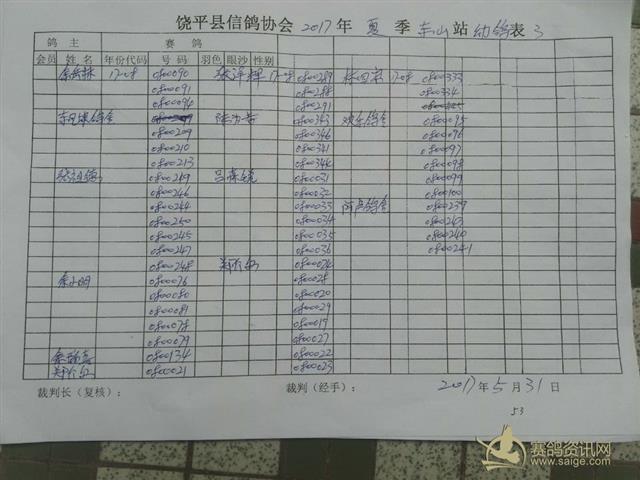 饶平县信鸽协会 2017年 夏 季 东山 站 幼鸽表 3
鸽 主 赛 鸽
会员 姓 名 年份代码 号 码 羽色 眼沙 性别
17-08 0800090 17-08 0800289 17-08 0800333
0800091 0800288 0800334
0800094 0800291
0800343 欢乐鸽舍 0800095
0800209 0800346 0800096
0800210 0800341 0800097
0800213 0800344 0800098
0800249 0800031 0800099
0800246 0800032 0800100
0800244 0800033 0800239
0800250 0800034 0800243
0800245 0800035 0800240
0800247 0800036 0800241
0800248 0800024
余小明 0800076 0800028
0800080 0800020
0800089 0800029
0800078 0800019
0800079 0800027
0800134 0800022
0800021 0800023
裁判长（复核）： 裁判（经手）： 2017年5月31日
53
赛鸽资讯网
www.saige.com